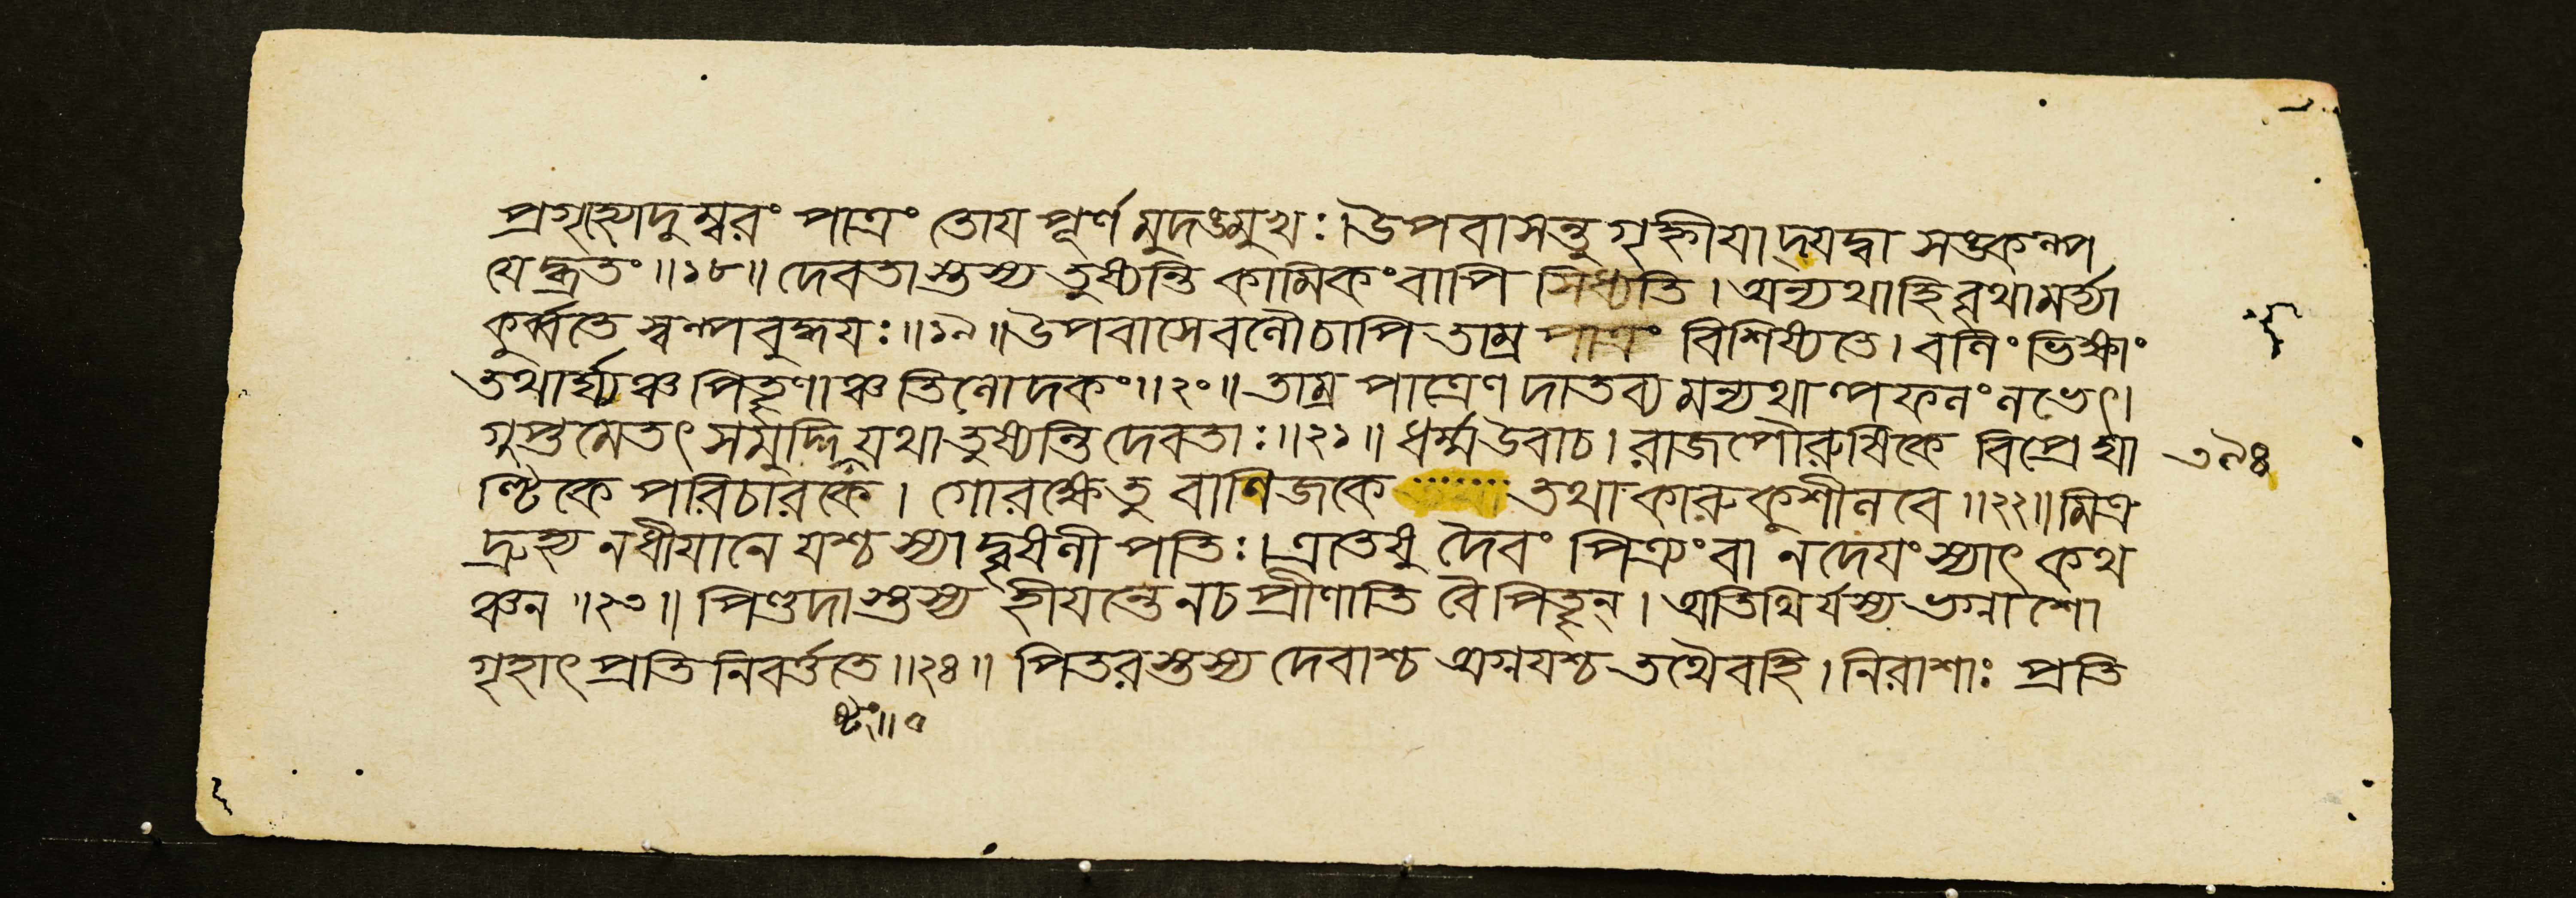 প্রগৃহ্যোদুম্বরং পাত্রং তোয পূর্ণ মুদঙমুখঃ। উপবাসন্তু গৃহ্নীযাদ্যদ্বা সঙকল্প
যেদ্ব্রতং ॥১৮॥ দেবতাস্তস্য তুষ্যন্তি কামিকং বাপি সিধ্যতি। অন্যথাহি বৃথামর্ত্যা
কুর্ব্বতে স্বল্পবুদ্ধযঃ ॥১৯॥ উপবাসে বলৌচাপি তাম্র পাত্রং বিশিষ্যতে। বলিং ভিক্ষাং
তথার্ঘ্যঞ্চ পিতৄণাঞ্চ তিলোদকং ॥২০॥ তাম্র পাত্রেণ দাতব্য মন্যথাল্পফলং লভেৎ।
গুপ্তমেতৎ সমুদ্দিষ্টং যথা তুষ্যন্তি দেবতাঃ ॥২১॥ ধর্ম্ম উবাচ। রাজপৌরুষিকে বিপ্রে ঘা
ণ্টিকে পরিচারকে। গোরক্ষেতু বাণিজকে তথা কারুকুশীলবে ॥২২॥ মিত্র
দ্রুহ্য নধীযানে যশ্চ স্যাদ্বৃষলী পতিঃ। এতেষু দৈবং পিত্র্যং বা ন দেযং স্যাৎ কথ
ঞ্চন ॥২৩॥ পিণ্ডদাস্তস্য হীযন্তে নচ প্রীণাতি বৈ পিতৄন্। অতিথির্যস্য ভগ্নাশো
গৃহাৎ প্রতি নিবর্ত্ততে ॥২৪॥ পিতরস্তস্য দেবাশ্চ অগ্নযশ্চ তথৈবহি। নিরাশাঃ প্রতি
ষ্টং॥৫
৩৯৪